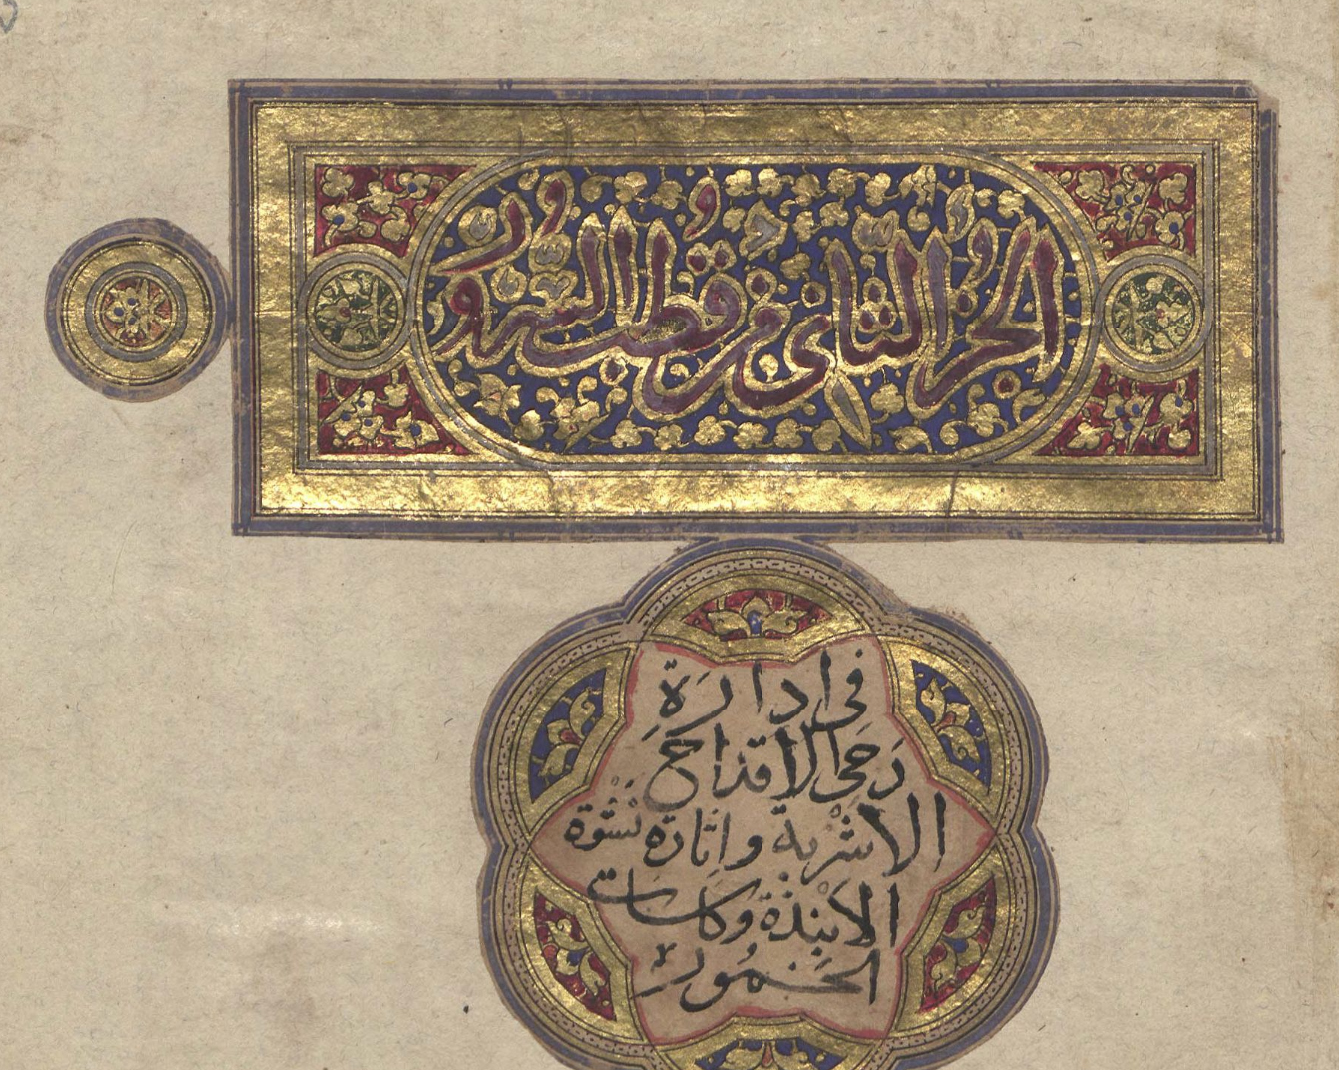 الجزء الثانى من قطب السرور
فى ادارة
رَحى الاقداح
الاشربة واثارة نشوة
الانبذة وكاسات
الخمور